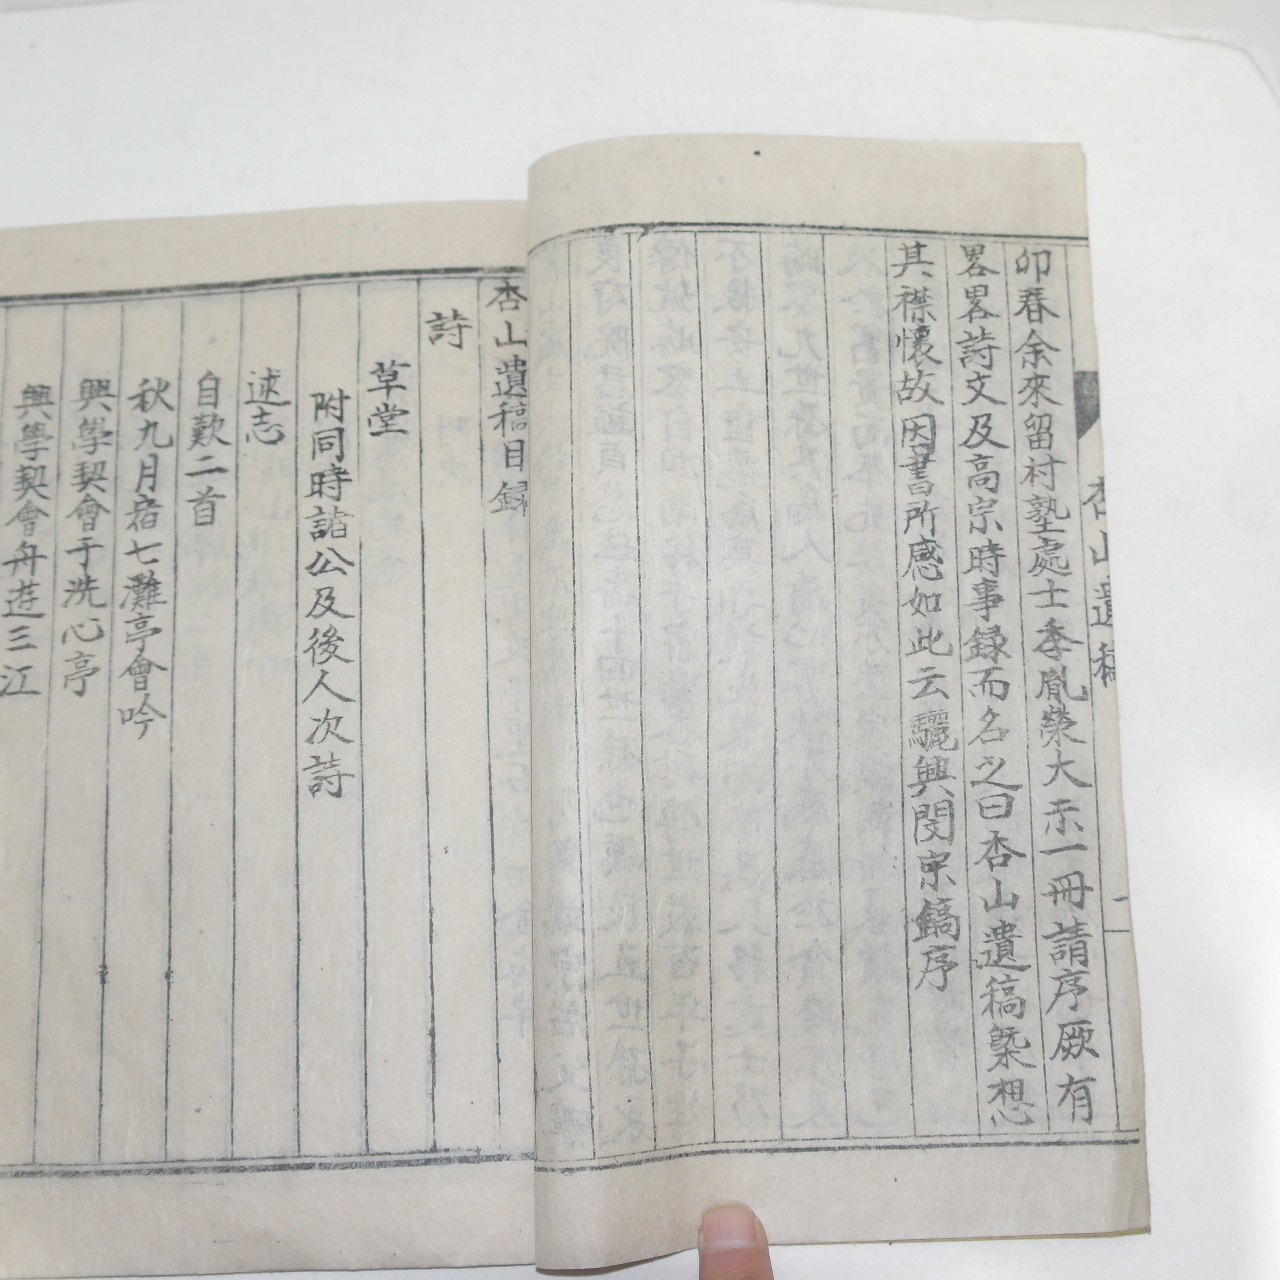 杏山遺稿
一
卯春余來留村塾處士季胤榮大示一冊請序厥有
畧畧詩文及高宗時事録而名之曰杏山遺稿槩想
其襟懷故因書所感如此云驪興閔宗鎬序
杏山遺稿目録
詩
草堂
附同時諸公及後人次詩
述志
自歎二首
秋九月宿七灘亭會吟
興學契會于洗心亭
興學契會舟遊三江